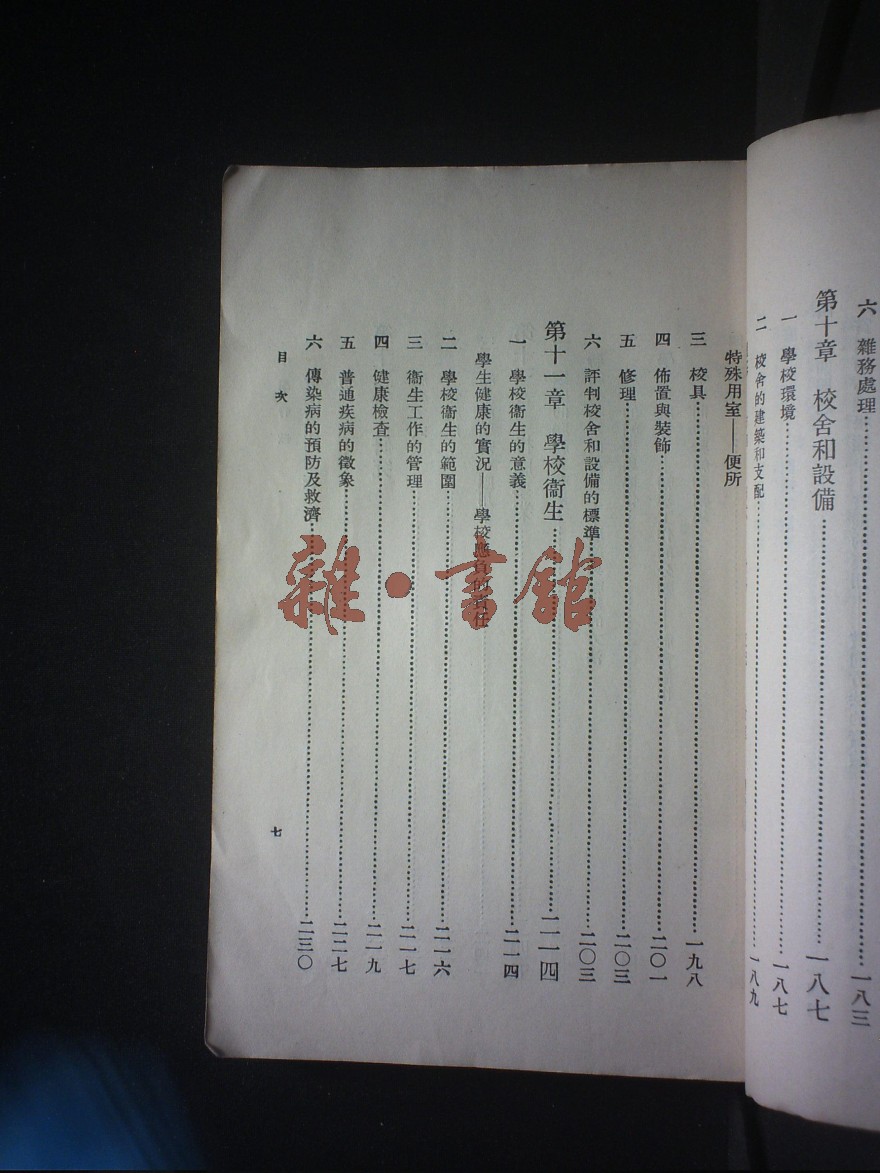 六 雜務處理……一八三
第十章 校舍和設備……一八七
一 學校環境……一八七
二 校舍的建築和支配……一八九
特殊用室——便所
三 校具……一九八
四 佈置與裝飾……二〇一
五 修理……二〇三
六 評判校舍和設備的標準……二〇三
第十一章 學校衞生……二一四
一 學校衞生的意義……二一四
學生健康的實況——學校應負的責任
二 學校衞生的範圍……二一六
三 衞生工作的管理……二一七
四 健康檢查……二一九
五 普通疾病的徵象……二二七
六 傳染病的預防及救濟……二三〇
目次
七
雜·書館